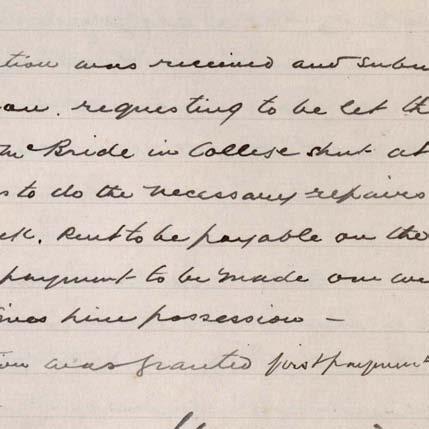 tion was received and subm
requesting to be let th
McBride in College Shut at
s to do the necessary repairs
ek. Rent to be payable on the
payment to be made one we
gives him possession —
ion was granted first payment